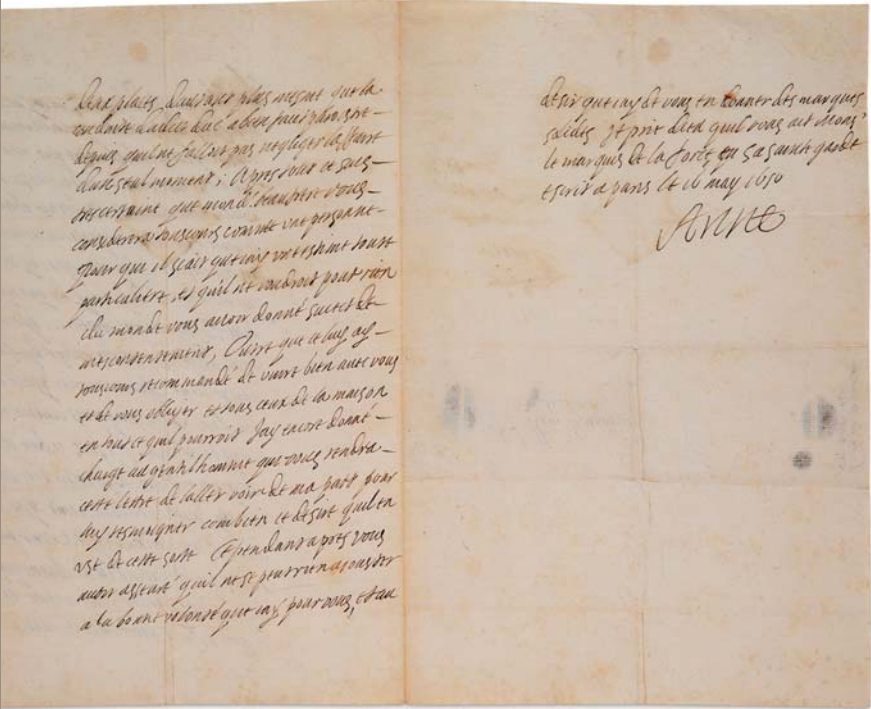 deux places, d'autant plus mesme que la
conduite dudit duc a bien fait
depuis, qu'il ne falloit pas negliger l'affaire
d'un seul moment; Apres tout je suis
tres certaine que mond. beaufrere vous
considerera tousiours comme une personne
pour qui il sçait que i'ay une estime toute
particuliere, et qu'il ne voudroit pour rien
du monde vous avoir donné suiet de
mescontentement, Outre que ie luy ay
tousiours recommandé de vivre bien avec vous
et de vous obliger et tous ceux de la maison
en tout ce qu'il pourroit J'ay encore donné
charge au gentilhomme qui vous rendra
cette lettre de l'aller voir de ma part pour
luy tesmoigner combien ie desire qu'il en
use de cette sorte Cependant apres vous
avoir asseuré qu'il ne se peut rien adiouster
a la bonne volonté que i'ay pour vous, et au
desir que i'ay de vous en donner des marques
solides Je prie dieu qu'il vous ait Mons.r
le marquis de la force, en sa sainte garde
escrit a paris le 16 may 1650
Anne